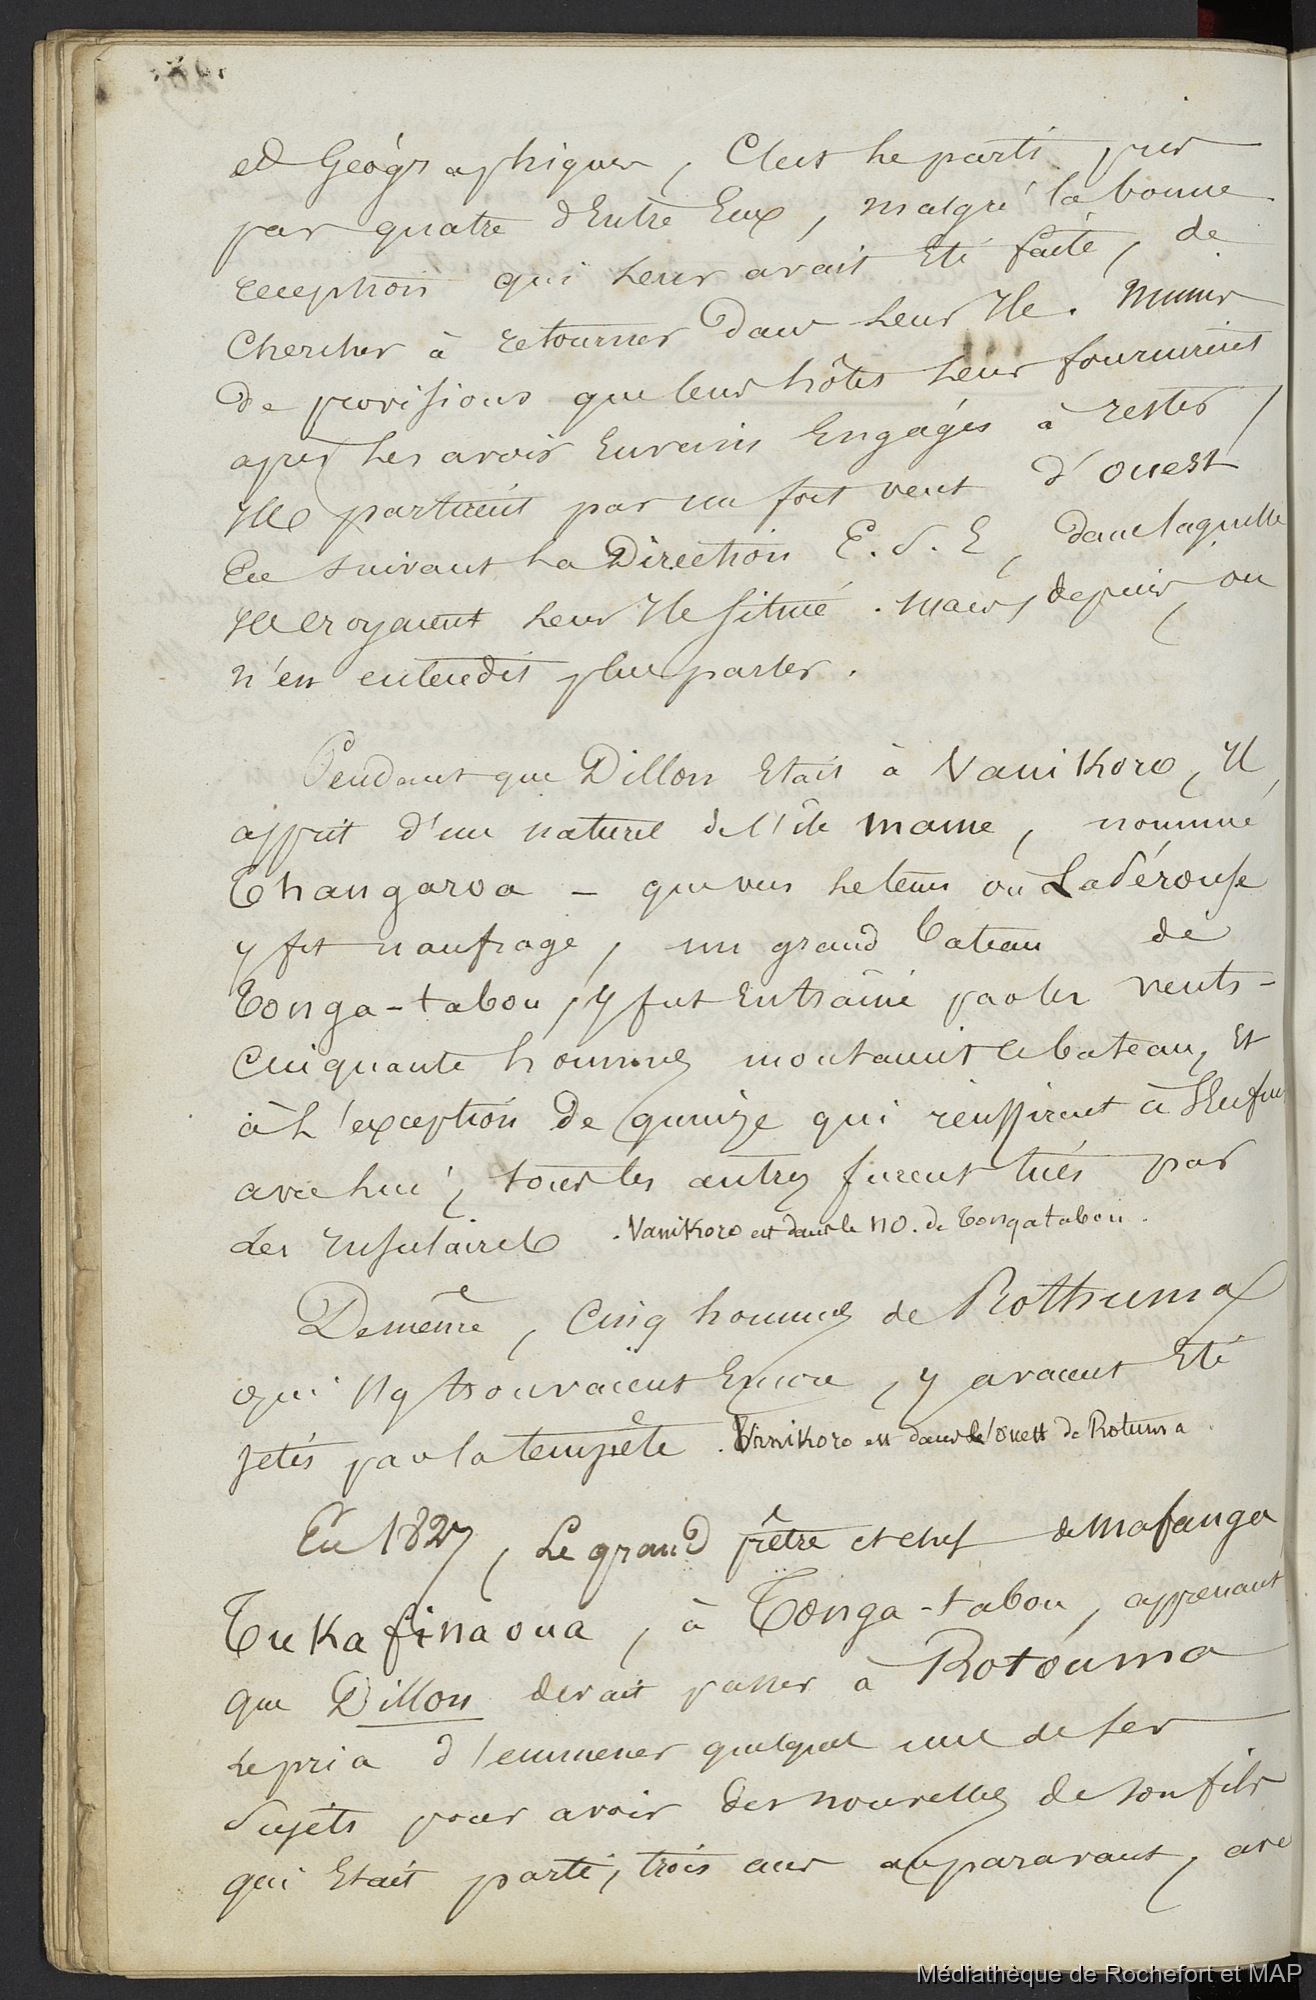 et Géographiques, C'est le parti pris
par quatre d'Entre Eux, malgré la bonne
reception qui leur avait Eté faite, de
Chercher à retourner dans leur Ile. Munis
de provisions que leurs hôtes leur fournirent
après les avoir Envain Engagés à rester,
Ils partirent par un fort vent d'ouest
En suivant la Direction E. S. E, dans laquelle
Ils croyaient leur Ile Située. Mais, depuis, on
n'en entendit plus parler.
Pendant que Dillon Etait à Vanikoro, Il
apprit d'un naturel de l'île mame, nommé
Thangaroa — que vers le tems où LaPérouse
y fit naufrage, un grand bateau de
Tonga-tabou, y fut Entraîné par les vents-
Cinquante hommes montaient le bateau, Et
à L'exception de quinze qui réussirent à S'Enfuir
avec lui, tous les autres furent tués par
Les Insulaires. Vanikoro est dans le NO. de Tongatabou.
De même, Cinq hommes de Rothuma
qui s'y trouvaient Encore, y avaient Eté
jetés par la tempête. Vanikoro est dans l'ouest de Rotuma.
En 1827, Le grand prêtre et chef de Mafanga
Tukafinaoua, à Tonga-tabou, apprenant
que Dillon devait passer à Rotouma
le pria d'emmener quelques uns de ses
Sujets pour avoir des nouvelles de son fils
qui Etait parti, trois ans auparavant, avec
Médiathèque de Rochefort et MAP